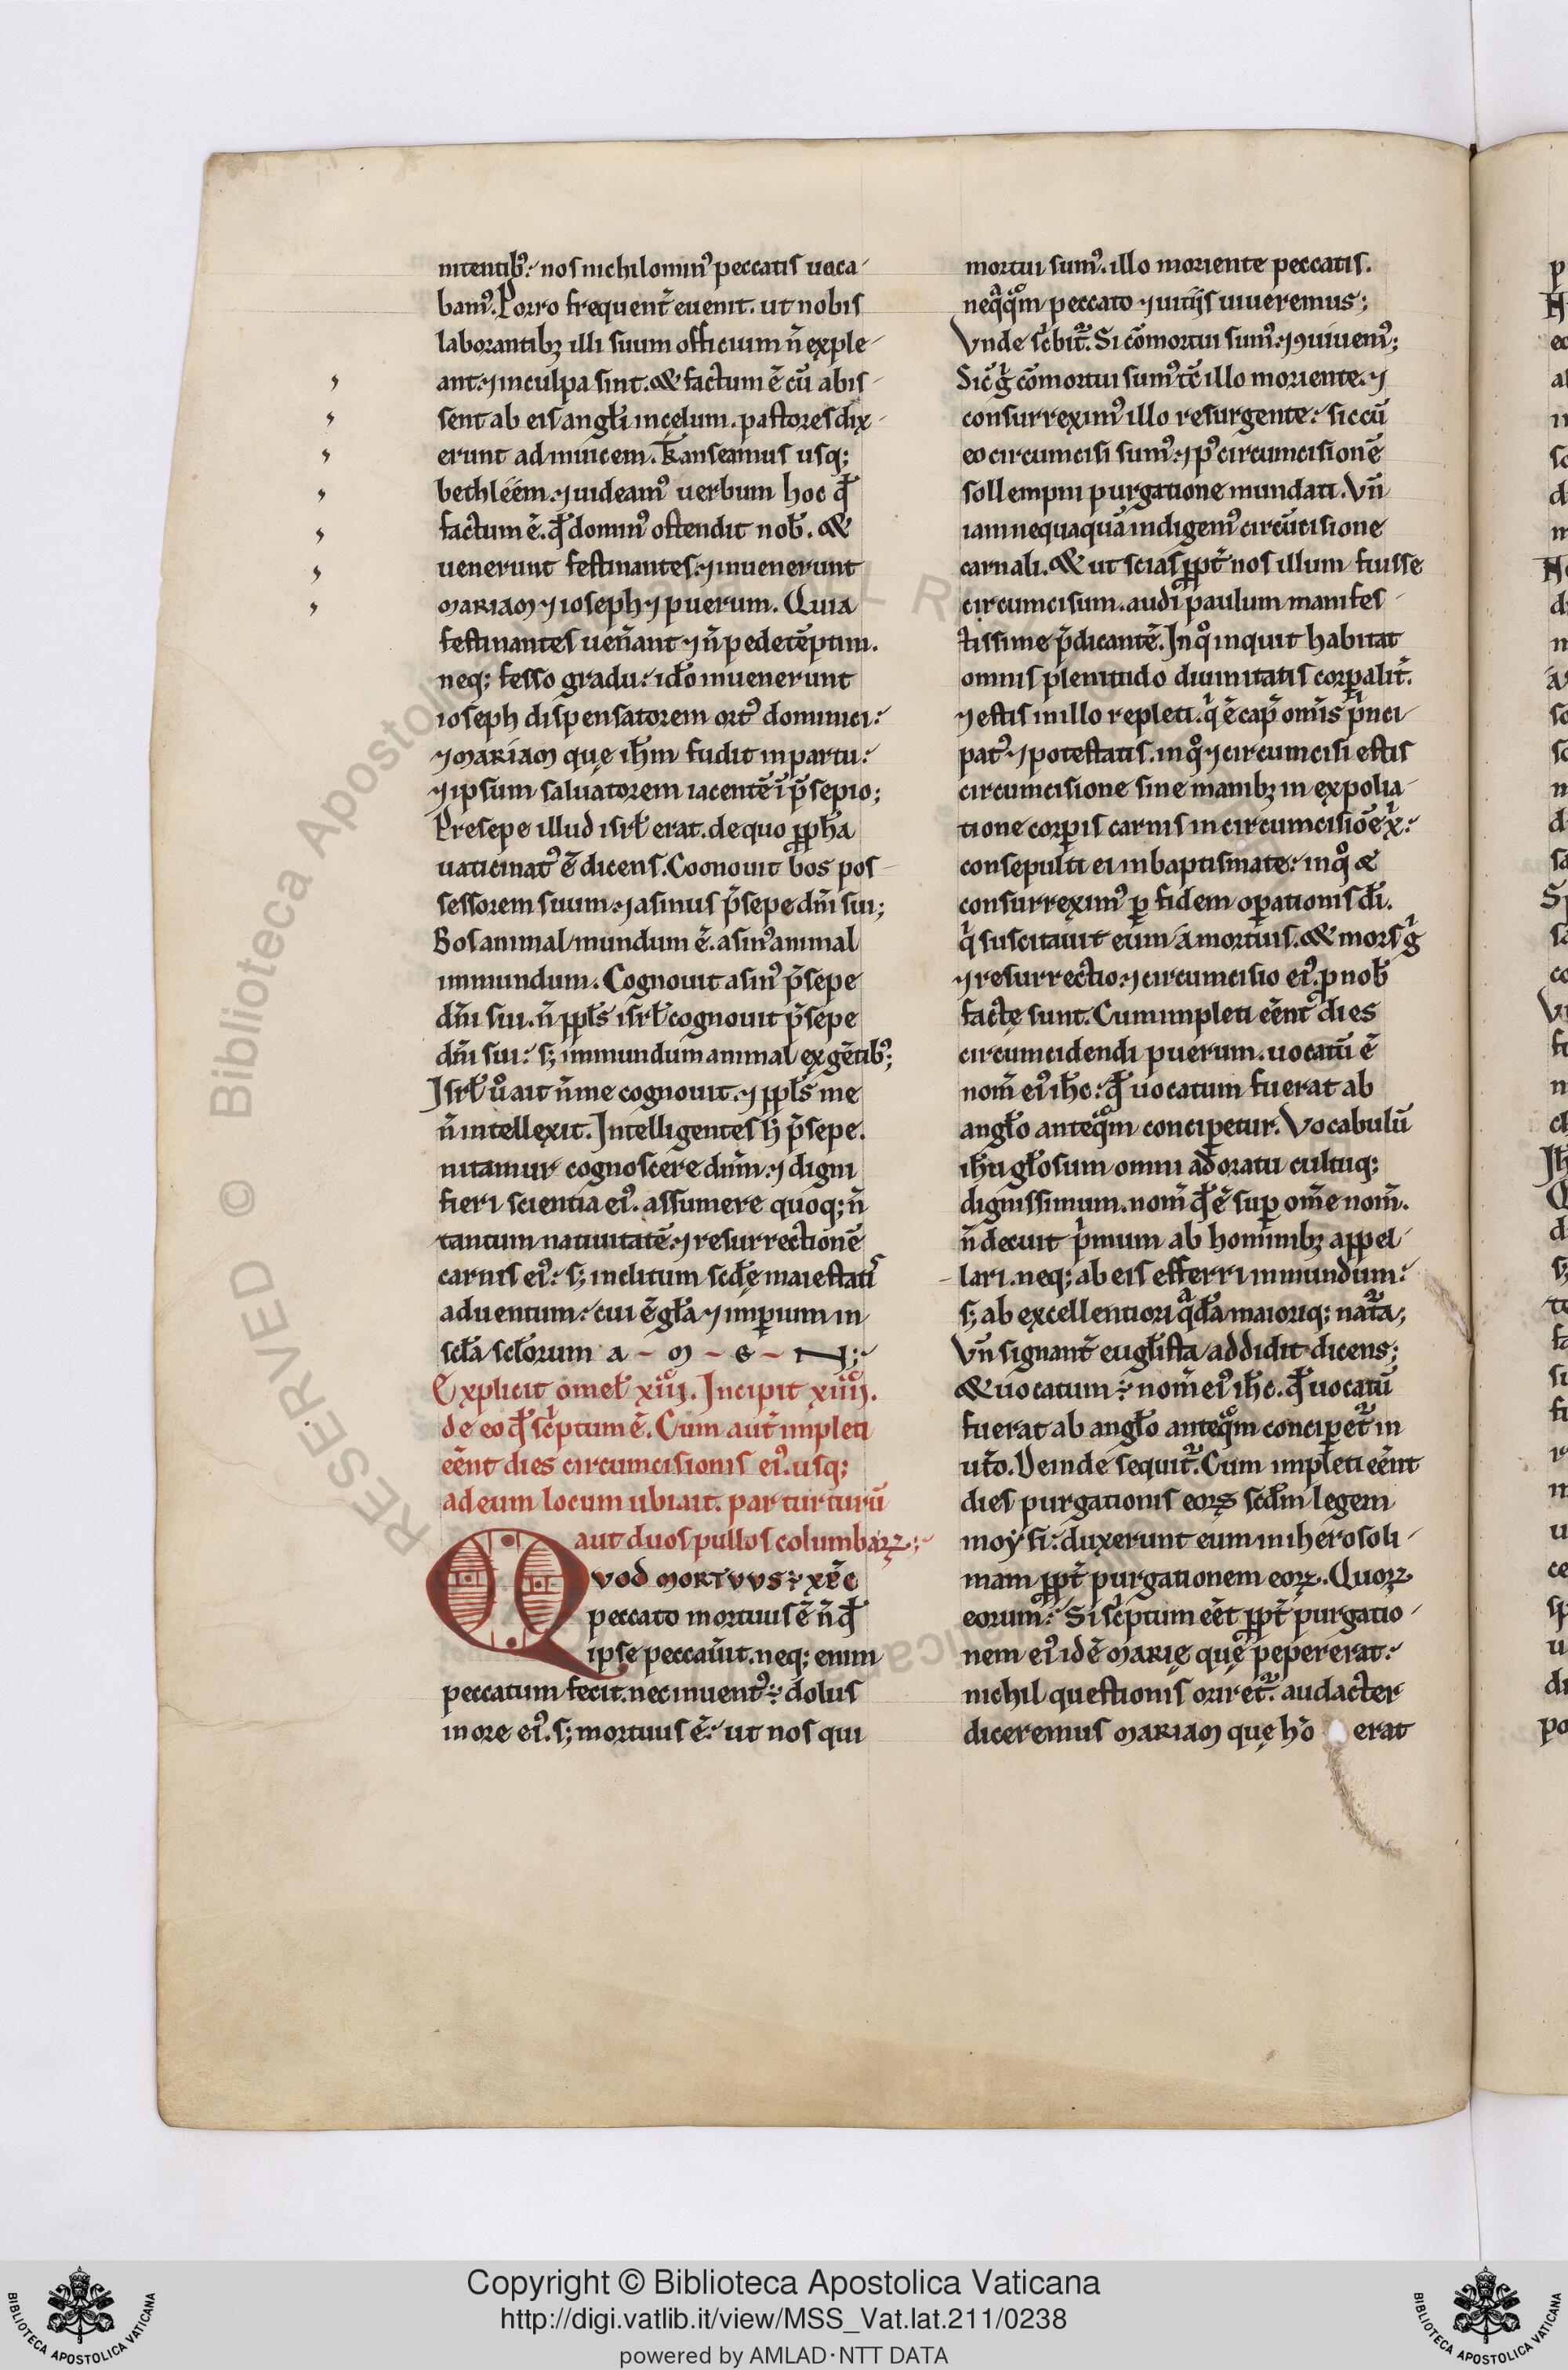 nitentibꝰ: nos nichilominꝰ peccatis uaca
bamꝰ. Porro frequent̃ euenit. ut nobis
laborantibꝫ illi suum officium ñ exple
ant. ⁊ in culpa sint. & factum ẽ cũ abis
sent ab eis angłi in cęlum. pastores dix
erunt ad inuicem. Transeamus usq;
bethléem. ⁊ uideamꝰ uerbum hoc qđ
factum ẽ. qđ dominꝰ ostendit nob̃. &
uenerunt festinantes. ⁊ inuenerunt
MARIAM ⁊ ioseph ⁊ puerum. Quia
festinantes uen̾ant ⁊ ñ pedetẽptim.
neq; fesso gradu: iđo inuenerunt
ioseph dispensatorem ortꝰ dominici:
⁊ MARIAM quę ihm̃ fudit in partu:
⁊ ipsum saluatorem iacentẽ ĩ p̃sepio;
Presepe illud isrł erat. de quo ꝓpha
uaticinatꝰ ẽ dicens. Cognouit bos pos
sessorem suum. ⁊ asinus p̃sepe dñi sui;
Bos animal mundum ẽ. asinꝰ animal
immundum. Cognouit asinꝰ p̃sepe
dñi sui. ñ ppłs isrł cognouit p̃sepe
dñi sui: s; immundum animal ex gẽtibꝰ;
Isrł ů ait ñ me cognouit. ⁊ ppłs me
ñ intellexit. Intelligentes h̾ p̃sepe.
nitamur cognoscere dñm. ⁊ digni
fieri scientia eiꝰ. assumere quoq; ñ
tantum natiuitatẽ. ⁊ resurrectionẽ
carnis eiꝰ: s; inclitum scđę maiestatis
aduentum: cui ẽ gła ⁊ imꝑium in
scła scłorum a - m - e - N;
Explicit omeł xiiı. Incipit xiiij.
de eo qđ sc̾ptum ẽ. Cum aut̃ impleti
eẽnt dies circumcisionis eiꝰ. usq;
ad eum locum ubi ait. par turturũ
aut duos pullos columbaꝝ;
QVOD MORTVVS ÷ xp̃c
peccato mortuus ẽ ñ qđ
ipse peccau̾it. neq; enim
peccatum fecit. nec inuentꝰ ÷ dolus
in ore eiꝰ. s; mortuus ẽ: ut nos qui
mortui sumꝰ. illo moriente peccatis.
neqͣqͦm peccato ⁊ uitijs uiueremus;
Vnde sc̾bit̃. Si cõmortui sumꝰ. ⁊ ꝯuiuemꝰ;
Sic̾ g̾ cõmortui sumꝰ tc̃ illo moriente. ⁊
consurreximꝰ illo resurgente: sic cũ
eo circumcisi sumꝰ. ⁊ pꝰ circumcisionẽ
sollempni purgatione mundati. Vñ
iam nequaquã indigemꝰ circũcisione
carnali. & ut scias ꝓpt̃ nos illum fuisse
circumcisum. audi paulum manifes
tissime p̃dicantẽ. In qͦ inquit habitat
omnis plenitudo diuinitatis corꝑalit̃.
⁊ estis in illo repleti. qͥ ẽ cap̃ om̃is pͥnci
patꝰ ⁊ potestatis. in qͦ ⁊ circumcisi estis
circumcisione sine manibꝫ in expolia
tione corꝑis carnis in circumcisiõe xͥ:
consepulti ei in baptismate: in qͦ &
consurreximꝰ ꝑ fidem oꝑationis đi.
qͥ suscitauit eum á mortuis. & mors g̾
⁊ resurrectio. ⁊ circumcisio eiꝰ. ꝓ nob̃
factę sunt. Cum impleti eẽnt dies
circumcidendi puerum. uocatũ ẽ
nom̃ eiꝰ ihc̃: qđ uocatum fuerat ab
angło anteqͦm conciꝑetur. Vocabulũ
ihũ głosum omni adoratu cultuq;
dignissimum. nom̃ qđ ẽ suꝑ om̃e nom̃.
ñ decuit pͥmum ab hominibꝫ appel
lari. neq; ab eis efferri in mundum:
s; ab excellentiori qͣđa maioriq; nat̃a;
Vñ signant̃ eugłista addidit dicens;
& uocatum ÷ nom̃ eiꝰ ihc̃. qđ uocatũ
fuerat ab angło anteqͦm conciꝑet̃ in
ut̃o. Deinde sequit̃. Cum impleti eẽnt
dies purgationis eoꝝ scđm legem
moẏsi: duxerunt eum in iherosoli
mam ꝓpt̃ purgationem eoꝝ. Quoꝝ
eorum: Si sc̾ptum eẽt ꝓpt̃ purgatio
nem eiꝰ idẽ MARIę quę pepererat:
nichil questionis oriret̃. audacter
diceremus MARIAM quę hõ erat